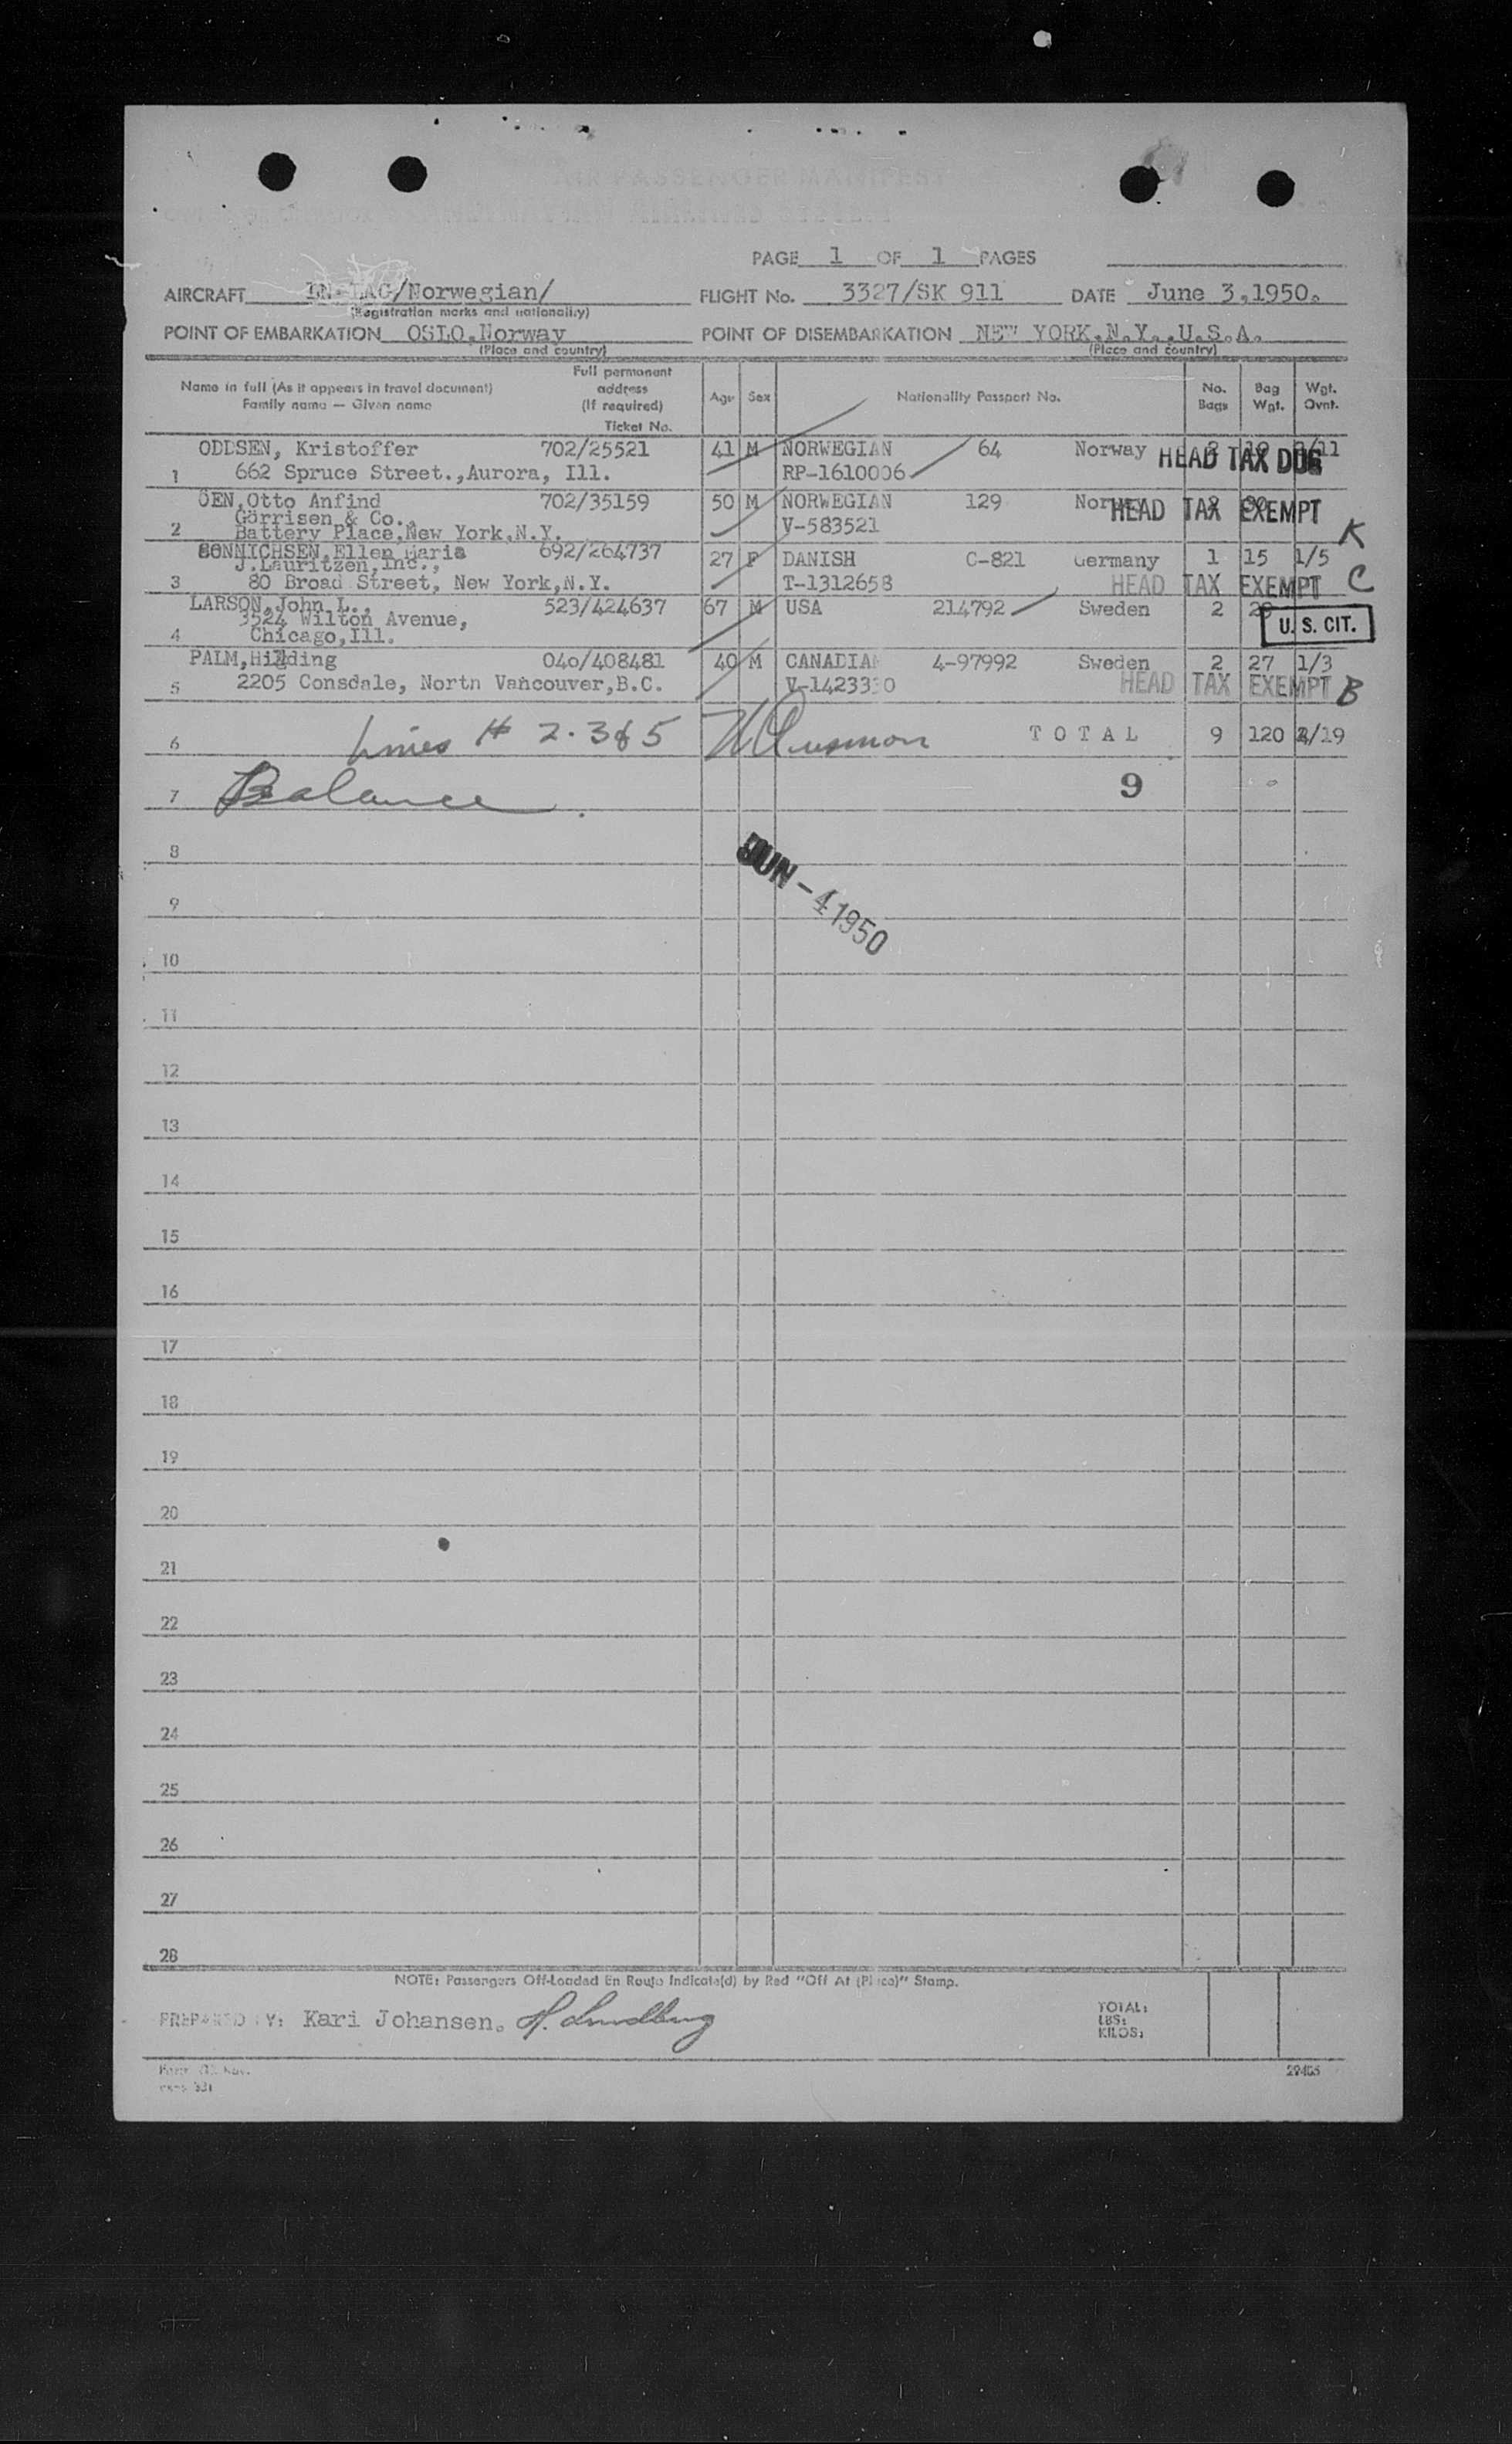 AIR PASSENGER MANIFEST
PAGE 1 OF 1 PAGES
AIRCRAFT LN-LAG/Norwegian/ FLIGHT No. 3327/SK 911 DATE June 3,1950.
(Registration marks and nationality)
POINT OF EMBARKATION OSLO,Norway POINT OF DISEMBARKATION NEW YORK.N.Y.,U.S.A.
(Place and country) (Place and country)
Name in full (As it appears in travel document) Family name — Given name Full permanent address (If required) Ticket No. Age Sex Nationality Passport No. No. Bags Bag Wgt. Wgt. Ovnt.
ODDSEN, Kristoffer 702/25521 41 M NORWEGIAN 64 Norway HEAD TAX DUE
1 662 Spruce Street.,Aurora, Ill. RP-1610006
OEN,Otto Anfind 702/35159 50 M NORWEGIAN 129 HEAD TAX EXEMPT
Gorrisen & Co., V-583521
2 Battery Place,New York,N.Y. K
SONNICHSEN,Ellen Maria 692/264737 27 F DANISH C-821 Germany 1 15 1/5
J.Lauritzen,Inc., T-1312658
3 80 Broad Street, New York,N.Y. HEAD TAX EXEMPT C
LARSON,John L., 523/424637 67 M USA 214792 Sweden 2
3524 Wilton Avenue, U. S. CIT.
4 Chicago,Ill.
PALM,Hilding 040/408481 40 M CANADIAN 4-97992 Sweden 2 27 1/3
5 2205 Consdale, North Vancouver,B.C. V-1423330 HEAD TAX EXEMPT B
6 Lines # 2.3&5 TOTAL 9 120 /19
7 Balance. 9
8
JUN-4 1950
9
10
11
12
13
14
15
16
17
18
19
20
21
22
23
24
25
26
27
28
NOTE: Passengers Off-Loaded En Route Indicate(d) by Red "Off At (Place)" Stamp.
PREPARED BY: Kari Johansen. H. Lundberg TOTAL:
LBS:
KILOS:
29465